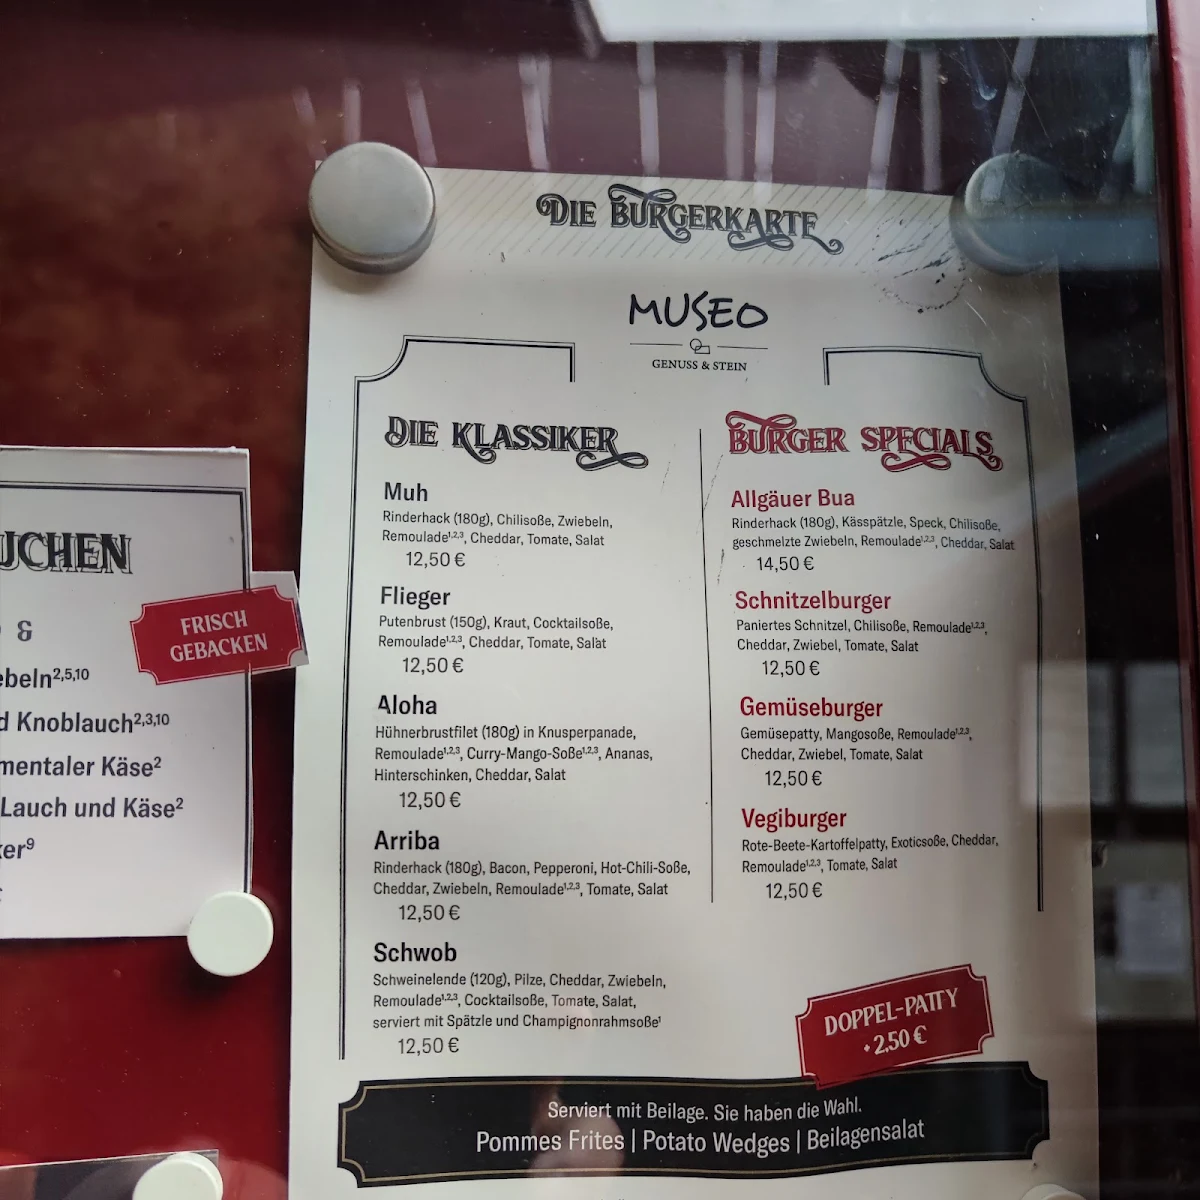 DIE BURGERKARTE
MUSEO
GENUSS & STEIN
DIE KLASSIKER
Muh
Rinderhack (180g), Chilisoße, Zwiebeln,
Remoulade¹,²,³, Cheddar, Tomate, Salat
12,50 €
Flieger
Putenbrust (150g), Kraut, Cocktailsoße,
Remoulade¹,²,³, Cheddar, Tomate, Salat
12,50 €
Aloha
Hühnerbrustfilet (180g) in Knusperpanade,
Remoulade¹,²,³, Curry-Mango-Soße¹,²,³, Ananas,
Hinterschinken, Cheddar, Salat
12,50 €
Arriba
Rinderhack (180g), Bacon, Pepperoni, Hot-Chili-Soße,
Cheddar, Zwiebeln, Remoulade¹,²,³, Tomate, Salat
12,50 €
Schwob
Schweinelende (120g), Pilze, Cheddar, Zwiebeln,
Remoulade¹,²,³, Cocktailsoße, Tomate, Salat,
serviert mit Spätzle und Champignonrahmsoße¹
12,50 €
BURGER SPECIALS
Allgäuer Bua
Rinderhack (180g), Kässpätzle, Speck, Chilisoße,
geschmelzte Zwiebeln, Remoulade¹,²,³, Cheddar, Salat
14,50 €
Schnitzelburger
Paniertes Schnitzel, Chilisoße, Remoulade¹,²,³,
Cheddar, Zwiebel, Tomate, Salat
12,50 €
Gemüseburger
Gemüsepatty, Mangosoße, Remoulade¹,²,³,
Cheddar, Zwiebel, Tomate, Salat
12,50 €
Vegiburger
Rote-Beete-Kartoffelpatty, Exoticsoße, Cheddar,
Remoulade¹,²,³, Tomate, Salat
12,50 €
DOPPEL-PATTY
+ 2,50 €
Serviert mit Beilage. Sie haben die Wahl.
Pommes Frites | Potato Wedges | Beilagensalat
UCHEN
&
FRISCH
GEBACKEN
ebeln²,⁵,¹⁰
d Knoblauch²,³,¹⁰
mentaler Käse²
Lauch und Käse²
ker⁹